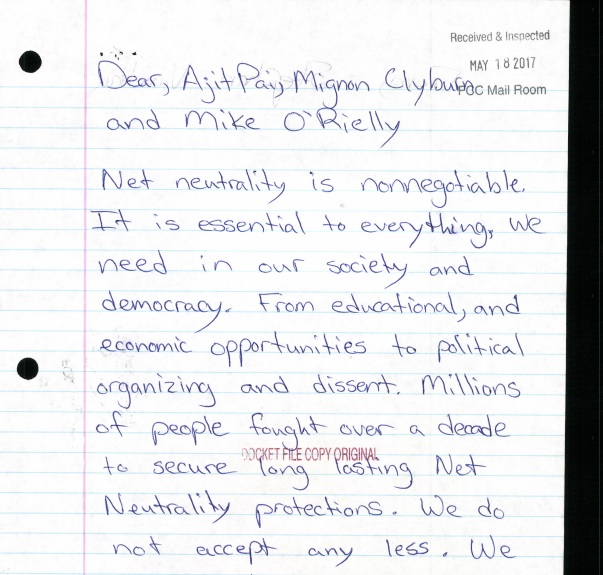 Received & Inspected
MAY 18 2017
FCC Mail Room
Dear, Ajit Pai, Mignon Clyburn
and Mike O'Rielly
Net neutrality is nonnegotiable.
It is essential to everything, we
need in our society and
democracy. From educational, and
economic opportunities to political
organizing and dissent. Millions
of people fought over a decade
DOCKET FILE COPY ORIGINAL
to secure long lasting Net
Neutrality protections. We do
not accept any less. We